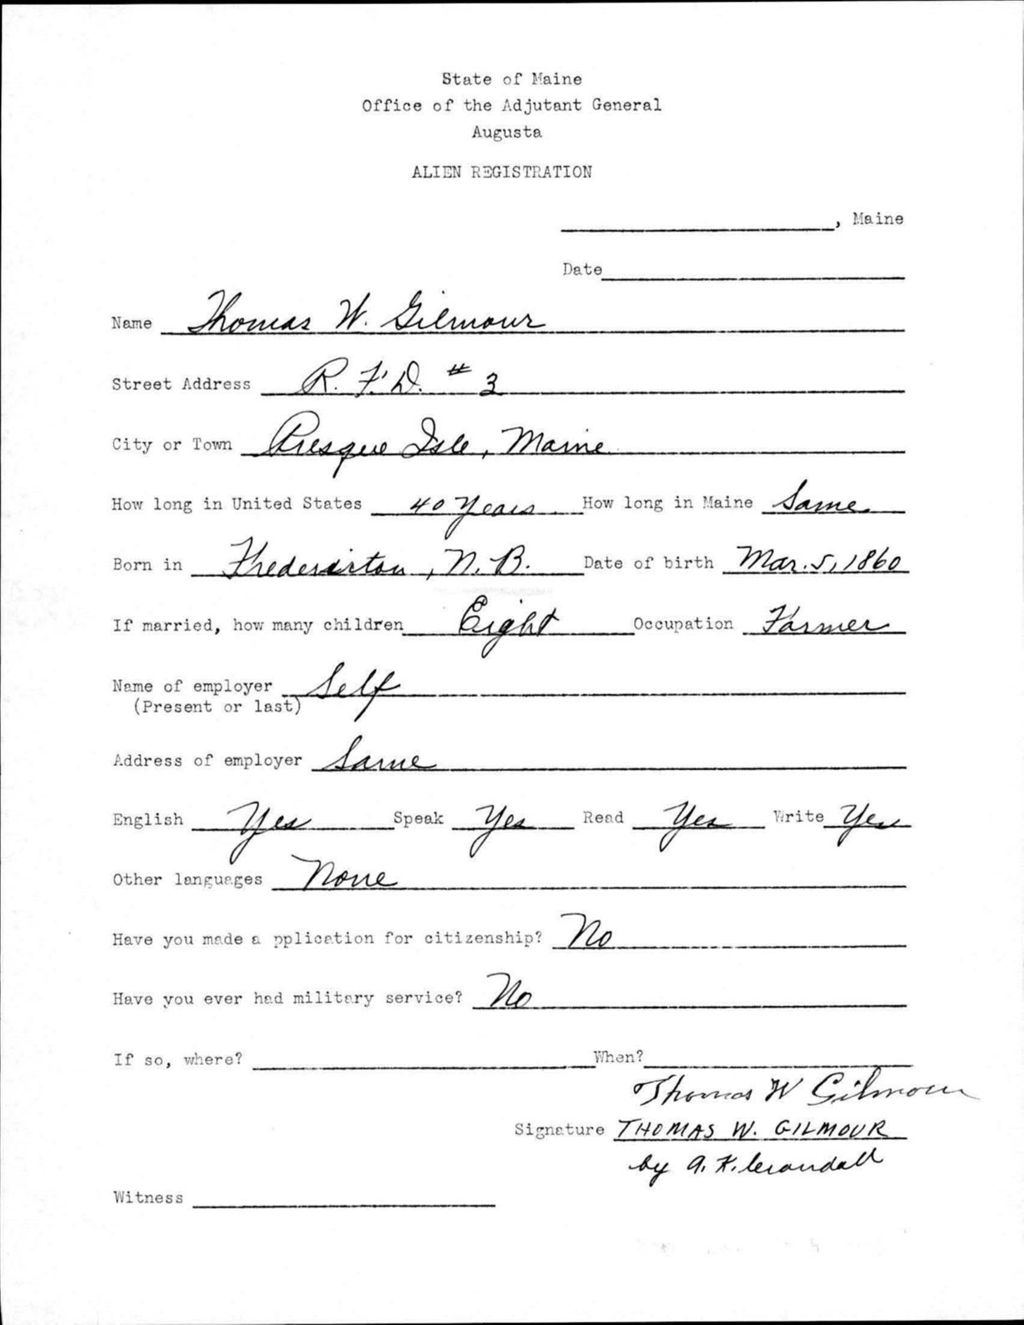 State of Maine
Office of the Adjutant General
Augusta
ALIEN REGISTRATION
, Maine
Date
Name Thomas W. Gilmour
Street Address R. F. D. # 3
City or Town Presque Isle, Maine
How long in United States 40 Years How long in Maine Same
Born in Fredericton, N. B. Date of birth Mar. 5, 1860
If married, how many children Eight Occupation Farmer
Name of employer Self
(Present or last)
Address of employer Same
English Yes Speak Yes Read Yes Write Yes
Other languages None
Have you made a pplication for citizenship? No
Have you ever had military service? No
If so, where? When?
Thomas W Gilmour
Signature THOMAS W. GILMOUR
by A. K. Crandall
Witness